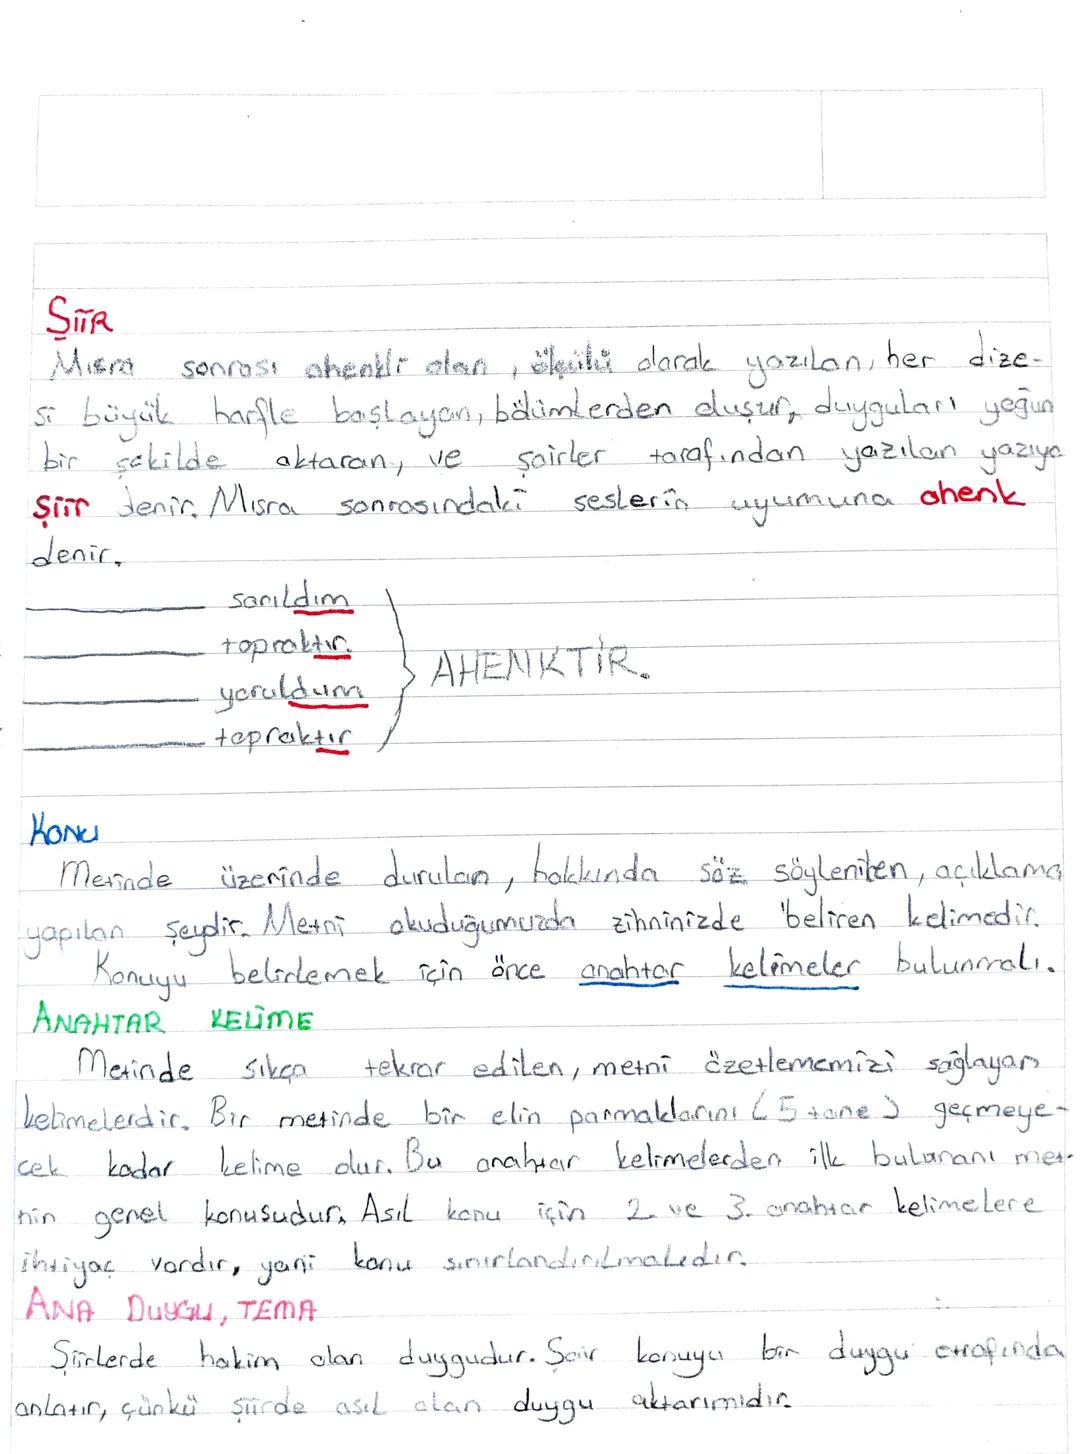 ŞİİR
Mısra sonrası ahenkli olan, ölçülü olarak yazılan, her dize-
si büyük harfle başlayan, bölümlerden oluşur, duyguları yoğun
bir şekilde aktaran, ve şairler tarafından yazılan yazıya
şiir denir. Mısra sonrasındaki seslerin uyumuna ahenk
denir.
sarıldım
topraktır.
yoruldum
topraktır
AHENKTİR.
KONU
Metinde üzerinde durulan, hakkında söz söylenilen, açıklama
yapılan şeydir. Metni okuduğumuzda zihninizde beliren kelimedir.
Konuyu belirlemek için önce anahtar kelimeler bulunmalı.
ANAHTAR KELİME
Metinde sıkça tekrar edilen, metni özetlememizi sağlayan
kelimelerdir. Bir metinde bir elin parmaklarını (5 tane) geçmeye-
cek kadar kelime olur. Bu anahtar kelimelerden ilk bulunanı met-
nin genel konusudur. Asıl konu için 2. ve 3. anahtar kelimelere
ihtiyaç vardır, yani konu sınırlandırılmalıdır.
ANA DUYGU, TEMA
Şiirlerde hakim olan duygudur. Şair konuyu bir duygu etrafında
anlatır, çünkü şiirde asıl olan duygu aktarımıdır.